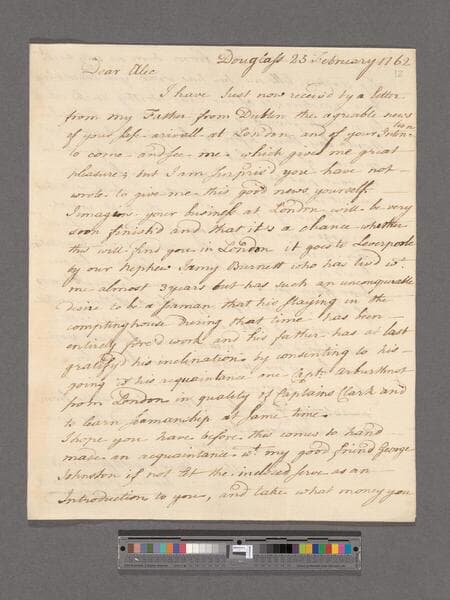 Douglass 25 February 1762
12
Dear Alec
I have Just now receiv'd by a letter
from my Father from Dublin the agreable news
of your safe arivall at London and of your Inten-
tion
to come and see me which gives me great
pleasure; but I am surpris'd you have not
wrote to give me this good news yourself.
I imagine your business at London will be very
soon finish'd and that it's a chance whether
this will find you in London it goes to Leverpoole
by our Nephew Jamy Burnett who has liv'd wt.
me almost 3 years but has such an unconquerable
desire to be a seaman that his staying in the
comptinghouse During that time has been
entirely forc'd work and his father has at last
gratify'd his inclinations by consenting to his
going wt. his acquaintance one Capt. Arburthnot
from London in quality of Captains Clark and
to learn seamanship at same time.
I hope you have before this comes to hand
made an acquaintance wt. my good friend George
Johnston if not let the inclosed serve as an
Introduction to you, and take what money you